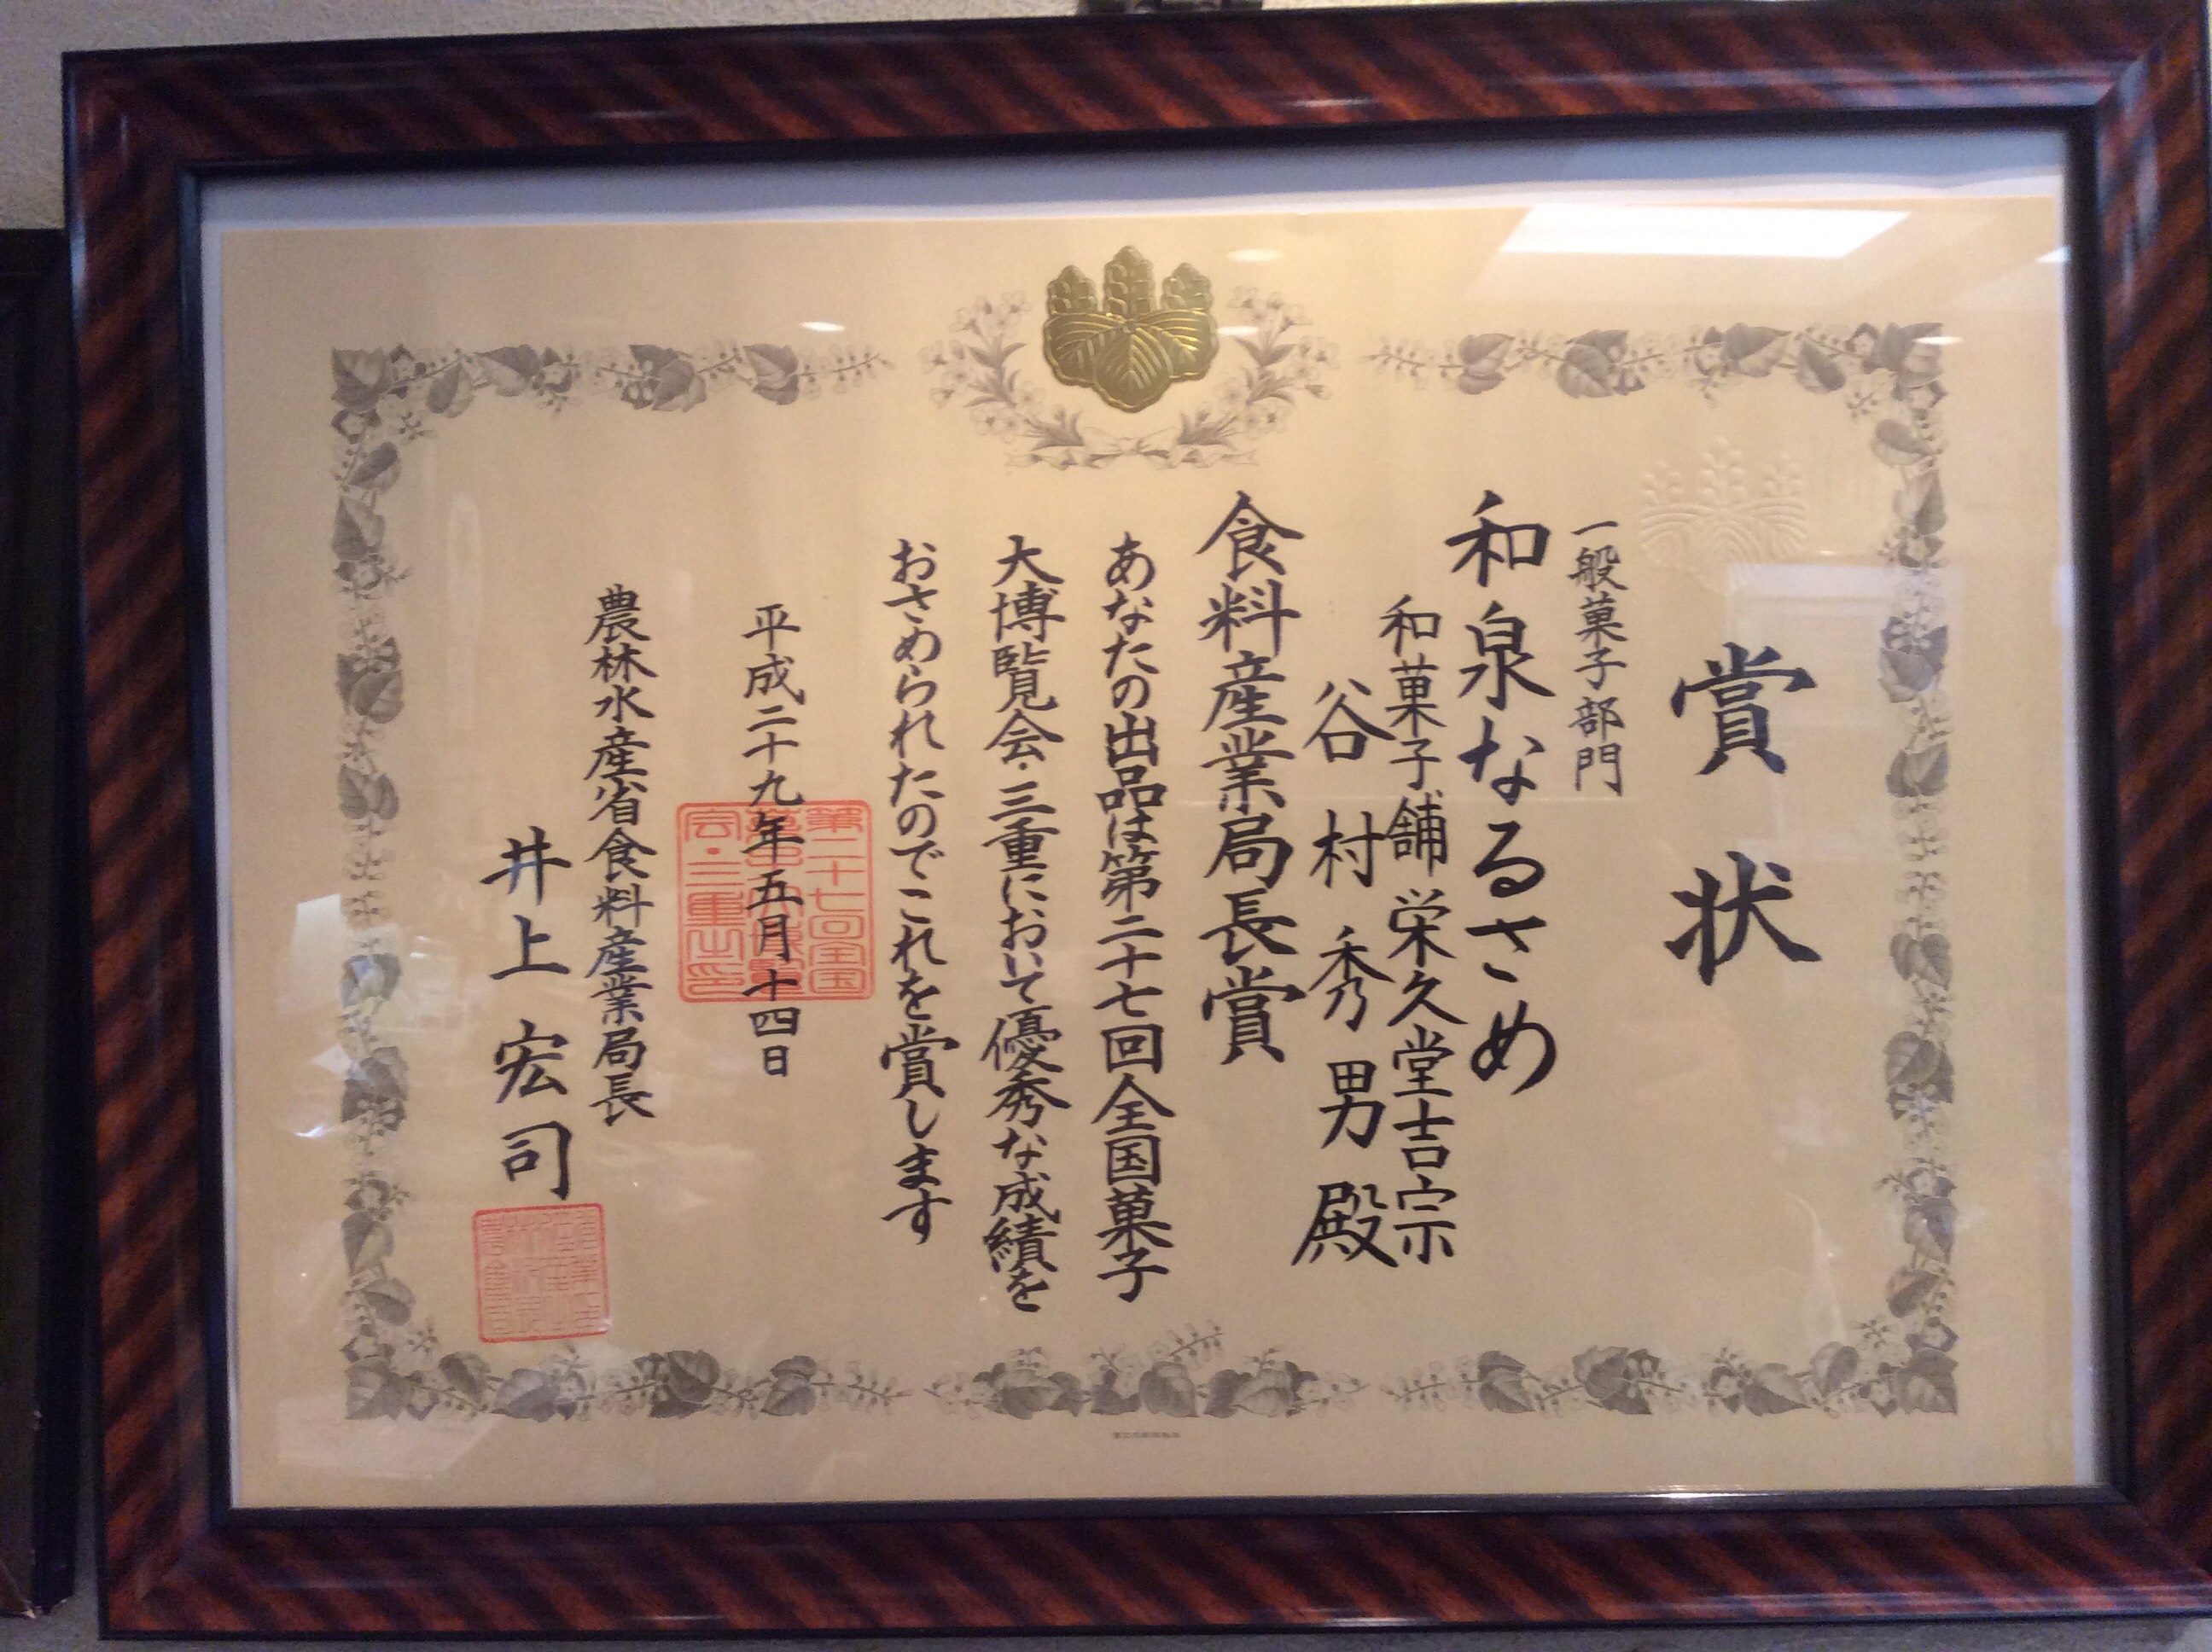 賞状
一般菓子部門
和泉なるさめ
和菓子舗 栄久堂吉宗
谷村秀男殿
食料産業局長賞
あなたの出品は第二十七回全国菓子
大博覧会・三重において優秀な成績を
おさめられたのでこれを賞します
平成二十九年五月十四日
農林水産省食料産業局長
井上宏司